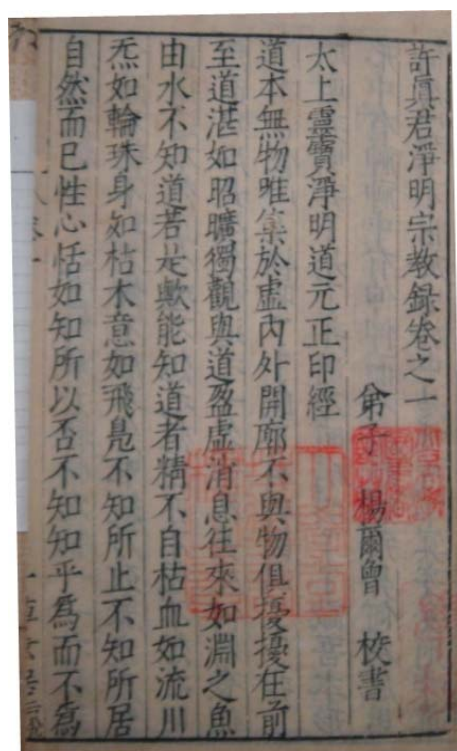 許眞君淨明宗教録卷之一
弟子 楊爾曾 校書
太上靈寶淨明道元正印經
道本無物唯集於虛内外開廓不與物俱擾擾在前
至道湛如昭曠獨觀與道盈虛消息往來如淵之魚
由水不知道若是歟能知道者精不自枯血如流川
炁如輪珠身如枯木意如飛鳧不知所止不知所居
自然而已性心恬如知所以否不知知乎爲而不爲